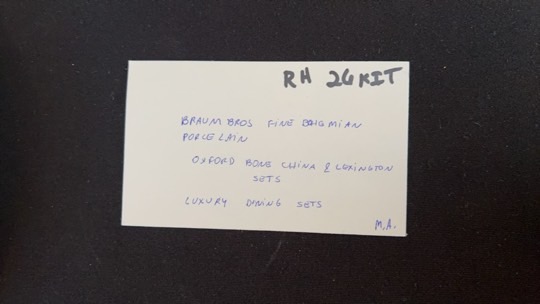 RH 26KIT
BRAUM BROS FINE BOHEMIAN
PORCELAIN
OXFORD BONE CHINA & LEXINGTON
SETS
LUXURY DINING SETS
M.A.